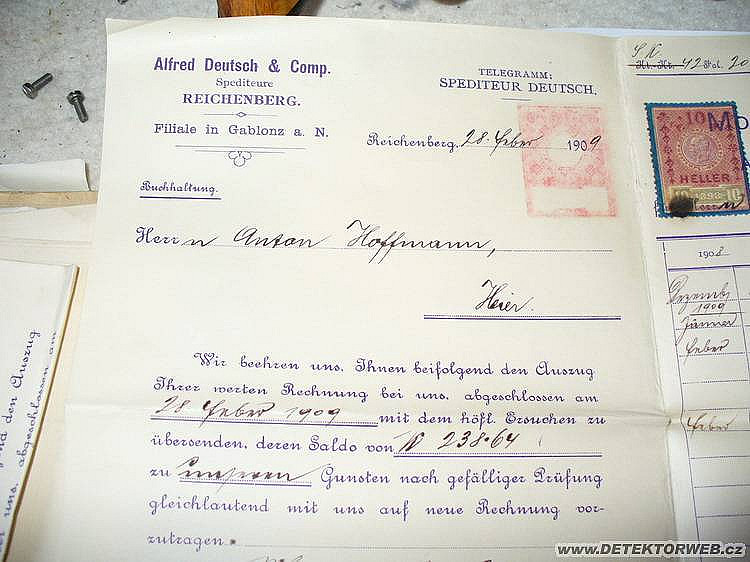 Alfred Deutsch & Comp.
Spediteure
REICHENBERG.
Filiale in Gablonz a. N.
TELEGRAMM:
SPEDITEUR DEUTSCH.
Reichenberg, 28. Feber 1909
Buchhaltung.
Herrn Anton Hoffmann,
Hier.
Wir beehren uns, Ihnen beifolgend den Auszug
Ihrer werten Rechnung bei uns, abgeschlossen am
28 Feber 1909 mit dem höfl. Ersuchen zu
übersenden, deren Saldo von K 238.64
zu unseren Gunsten nach gefälliger Prüfung
gleichlautend mit uns auf neue Rechnung vor-
zutragen.
42 Fol. 20
10
HELLER
10 1898 10
Mo
1908
Dezemb
1909
Jänner
Feber
Feber
nd den Auszug
r uns, abgeschlossen am
www.DETEKTORWEB.cz